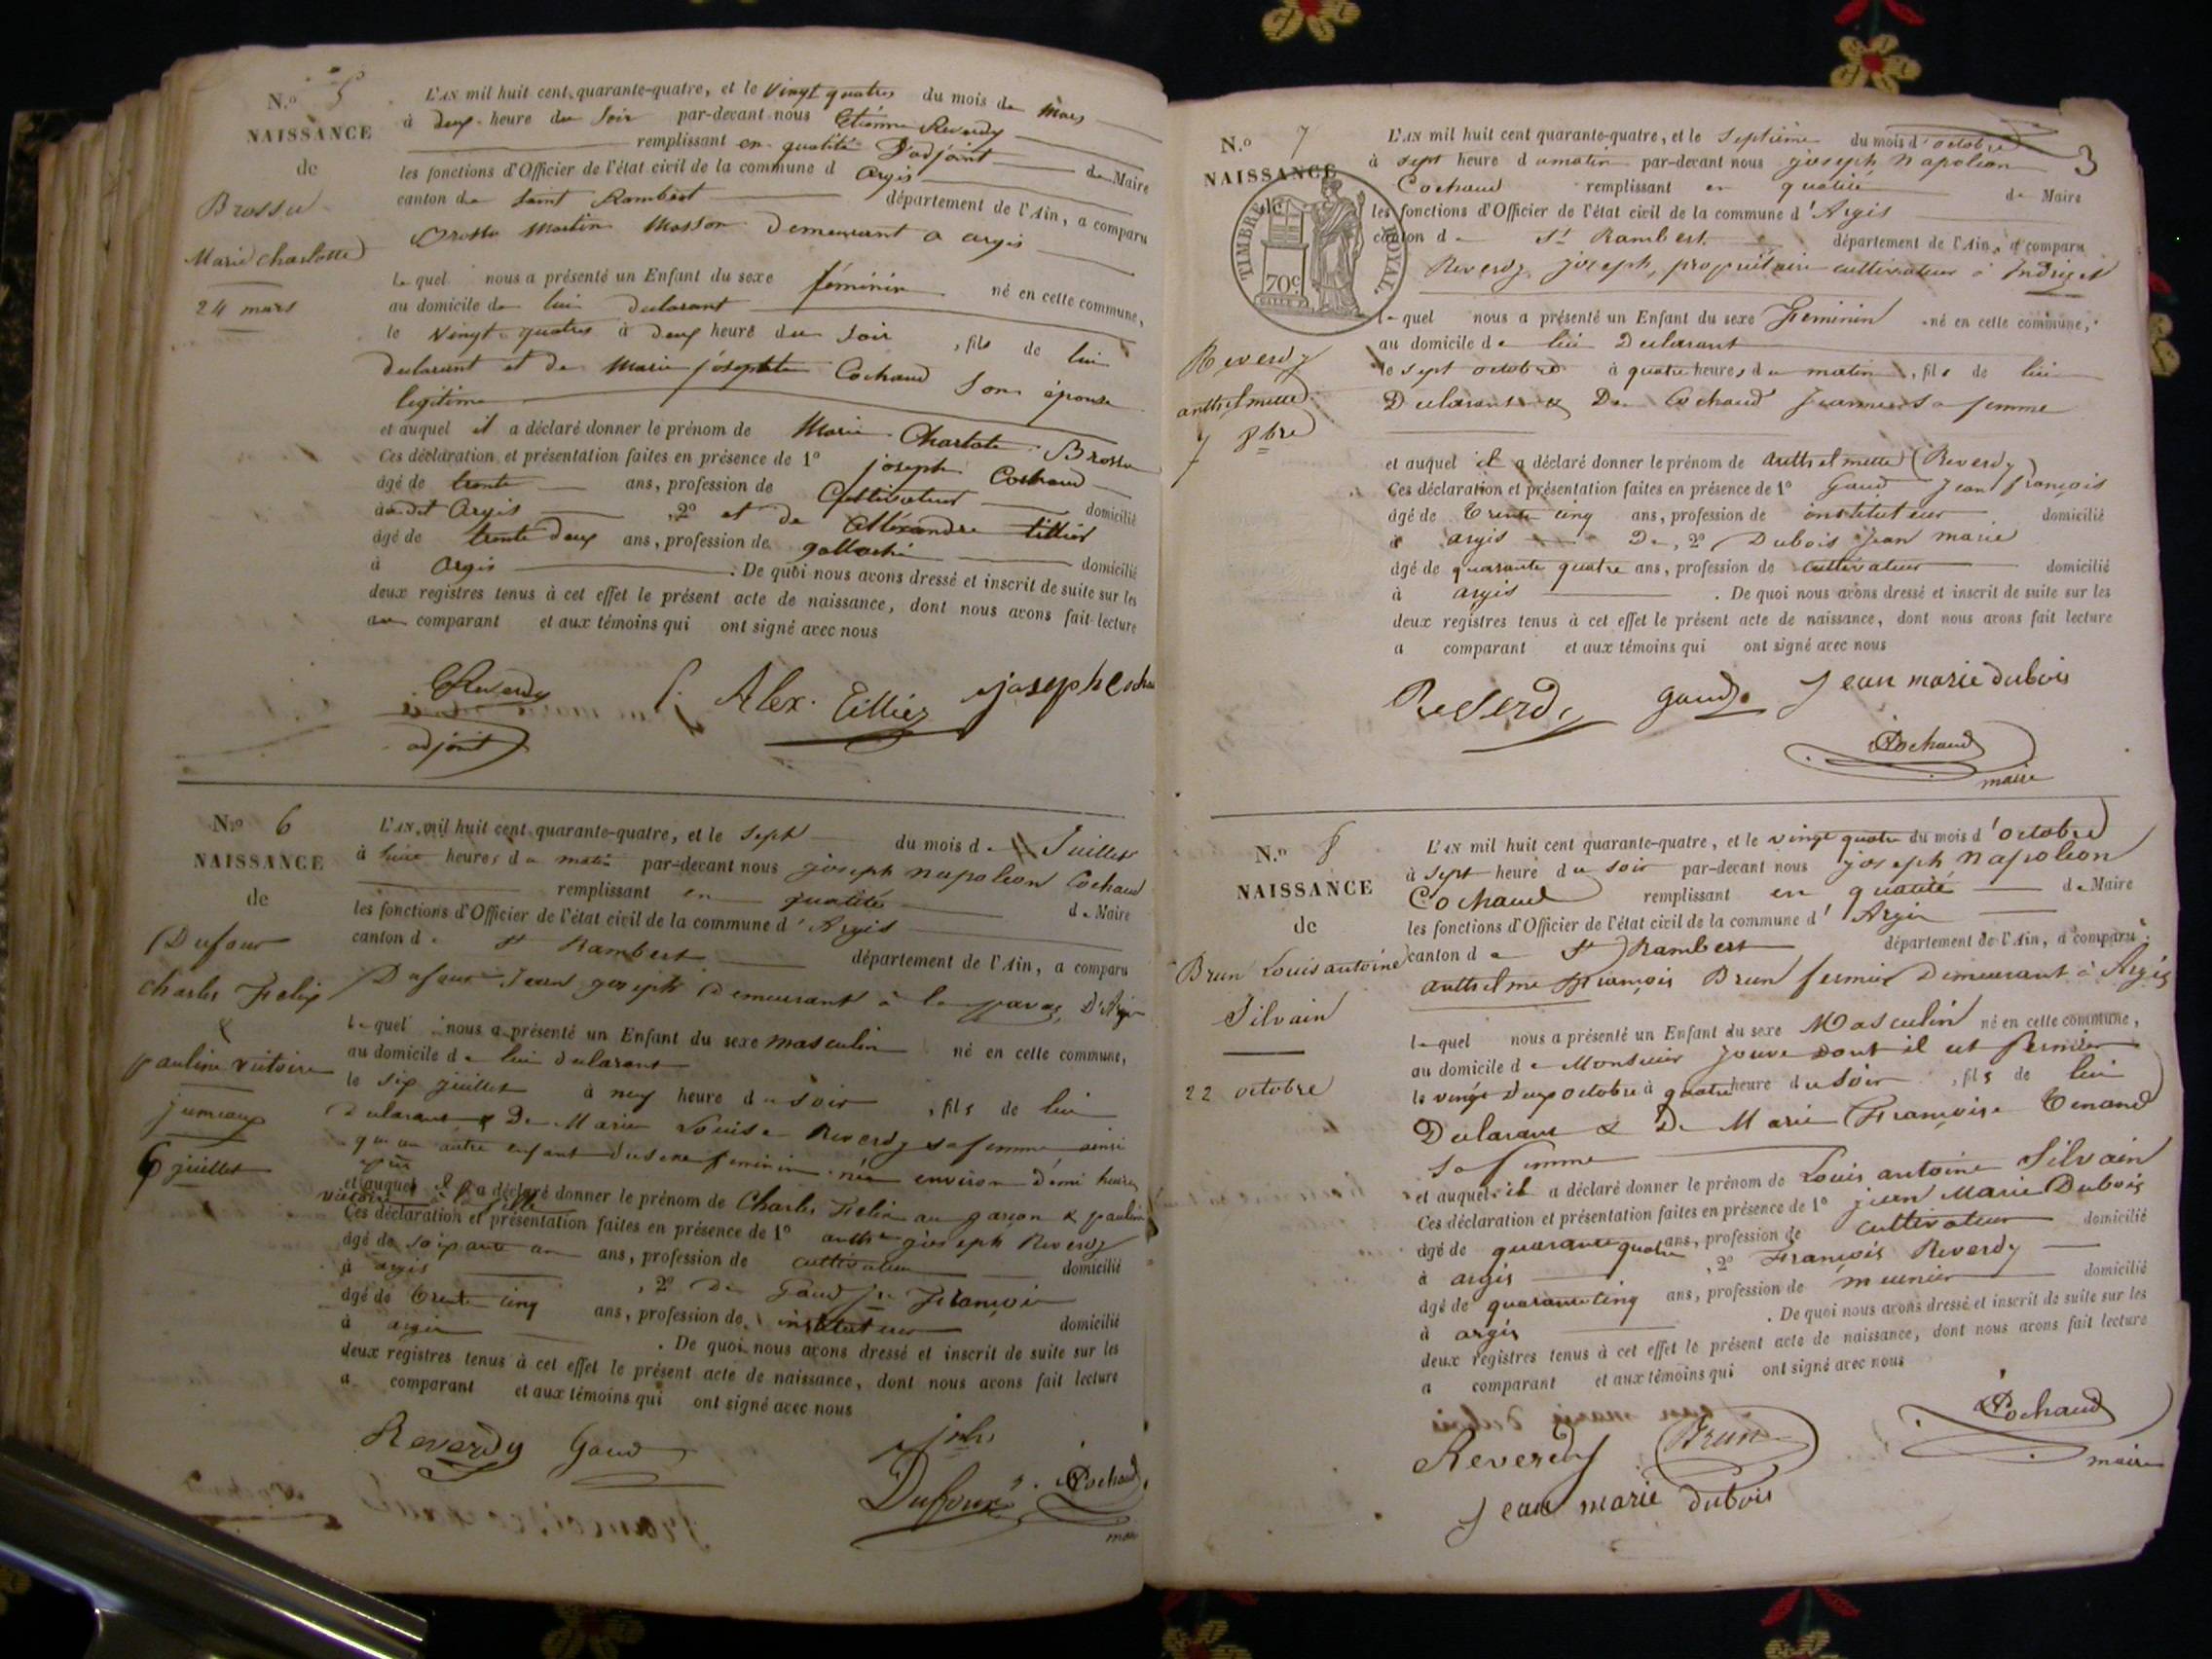 N.o 5
NAISSANCE
de
Brossu
Marie Charlotte
24 mars
L'AN mil huit cent quarante-quatre, et le vingt quatres du mois de mars
à deux heure du soir par-devant nous Etienne Reverdy
remplissant en qualité d'adjoint de Maire
les fonctions d'Officier de l'état civil de la commune d argis
canton de saint Rambert département de l'Ain, a comparu
Brossu martin masson demeurant a argis
le quel nous a présenté un Enfant du sexe féminin né en cette commune,
au domicile de lui declarant
le vingt quatres à deux heure du soir , fils de lui
declarant et de marie josephte Cochaud son épouse
legitime
et auquel il a déclaré donner le prénom de Marie Charlote Brossu
Ces déclaration et présentation faites en présence de 1o joseph Cochaud
âgé de trente ans, profession de Cultivateur domicilié
à dit Argis , 2o et de Alléxandre tillier
âgé de trente deux ans, profession de domicilié
à Argis . De quoi nous avons dressé et inscrit de suite sur les
deux registres tenus à cet effet le présent acte de naissance, dont nous avons fait lecture
au comparant et aux témoins qui ont signé avec nous
EReverdy Alex. Tillier joseph Cocha
adjoint
N.o 6
NAISSANCE
de
Dufour
charles Felix
&
pauline victoire
jumeaux
6 juillet
L'AN mil huit cent quarante-quatre, et le sept du mois de Juillet
à huit heures du matin par-devant nous joseph napoléon Cochaud
remplissant en qualité de Maire
les fonctions d'Officier de l'état civil de la commune d'Argis
canton de St Rambert département de l'Ain, a comparu
Dufour Jean joseph demeurant à la pavas, D'Argis
le quel nous a présenté un Enfant du sexe masculin né en cette commune,
au domicile de lui declarant
le six juillet à neuf heure du soir , fils de lui
Declarant & De Marie Louise Reverdy sa femme ainsi
qu'un autre enfant du sexe feminin née environ demi heure
après
et auquel il a déclaré donner le prénom de Charles Felix au garçon & pauline
victoire à la fille
Ces déclaration et présentation faites en présence de 1o anthme joseph Reverdy
âgé de soixante un ans, profession de cultivateur domicilié
à argis , 2o De Gaud jn François
âgé de trente cinq ans, profession de instituteur domicilié
à argis . De quoi nous avons dressé et inscrit de suite sur les
deux registres tenus à cet effet le présent acte de naissance, dont nous avons fait lecture
a comparant et aux témoins qui ont signé avec nous
Reverdy Gaud jph Dufour Cochaud
N.o 7
NAISSANCE
de
TIMBRE ROYAL.
70c
Reverdy
anthelmette
7 8bre
3
L'AN mil huit cent quarante-quatre, et le septième du mois d'octobre
à sept heure du matin par-devant nous joseph napoléon
Cochaud remplissant en qualité de Maire
les fonctions d'Officier de l'état civil de la commune d'Argis
canton de St Rambert département de l'Ain, a comparu
Reverdy joseph, propriétaire cultivateur à Indrieet
le quel nous a présenté un Enfant du sexe Feminin né en cette commune,
au domicile de lui Declarant
le sept octobre à quatre heures du matin , fils de lui
Declarant & De Cochaud Jeanne sa femme
et auquel il a déclaré donner le prénom de anthelmette (Reverdy)
Ces déclaration et présentation faites en présence de 1o Gaud Jean françois
âgé de trente cinq ans, profession de instituteur domicilié
à argis De, 2o Dubois Jean marie
âgé de quarante quatre ans, profession de cultivateur domicilié
à argis . De quoi nous avons dressé et inscrit de suite sur les
deux registres tenus à cet effet le présent acte de naissance, dont nous avons fait lecture
a comparant et aux témoins qui ont signé avec nous
Reverdy gaud Jean marie dubois
Cochaud
maire
N.o 8
NAISSANCE
de
Brun Louis antoine
Silvain
22 octobre
L'AN mil huit cent quarante-quatre, et le vingt quatre du mois d'octobre
à sept heure du soir par-devant nous joseph napoléon
Cochaud remplissant en qualité de Maire
les fonctions d'Officier de l'état civil de la commune d'Argis
canton de St Rambert département de l'Ain, a comparu
anthelme François Brun fermier Demeurant à Argis
le quel nous a présenté un Enfant du sexe Masculin né en cette commune,
au domicile de Monsieur Jouve dont il est fermier
le vingt deux octobre à quatre heure du soir , fils de lui
Declarant & De Marie Françoise Tenand
sa femme
et auquel il a déclaré donner le prénom de Louis antoine Silvain
Ces déclaration et présentation faites en présence de 1o jean Marie Dubois
âgé de quarante quatre ans, profession de cultivateur domicilié
à argis , 2o François Reverdy
âgé de quarante cinq ans, profession de meunier domicilié
à argis . De quoi nous avons dressé et inscrit de suite sur les
deux registres tenus à cet effet le présent acte de naissance, dont nous avons fait lecture
a comparant et aux témoins qui ont signé avec nous
Reverdy Brun Cochaud
maire
Jean marie dubois